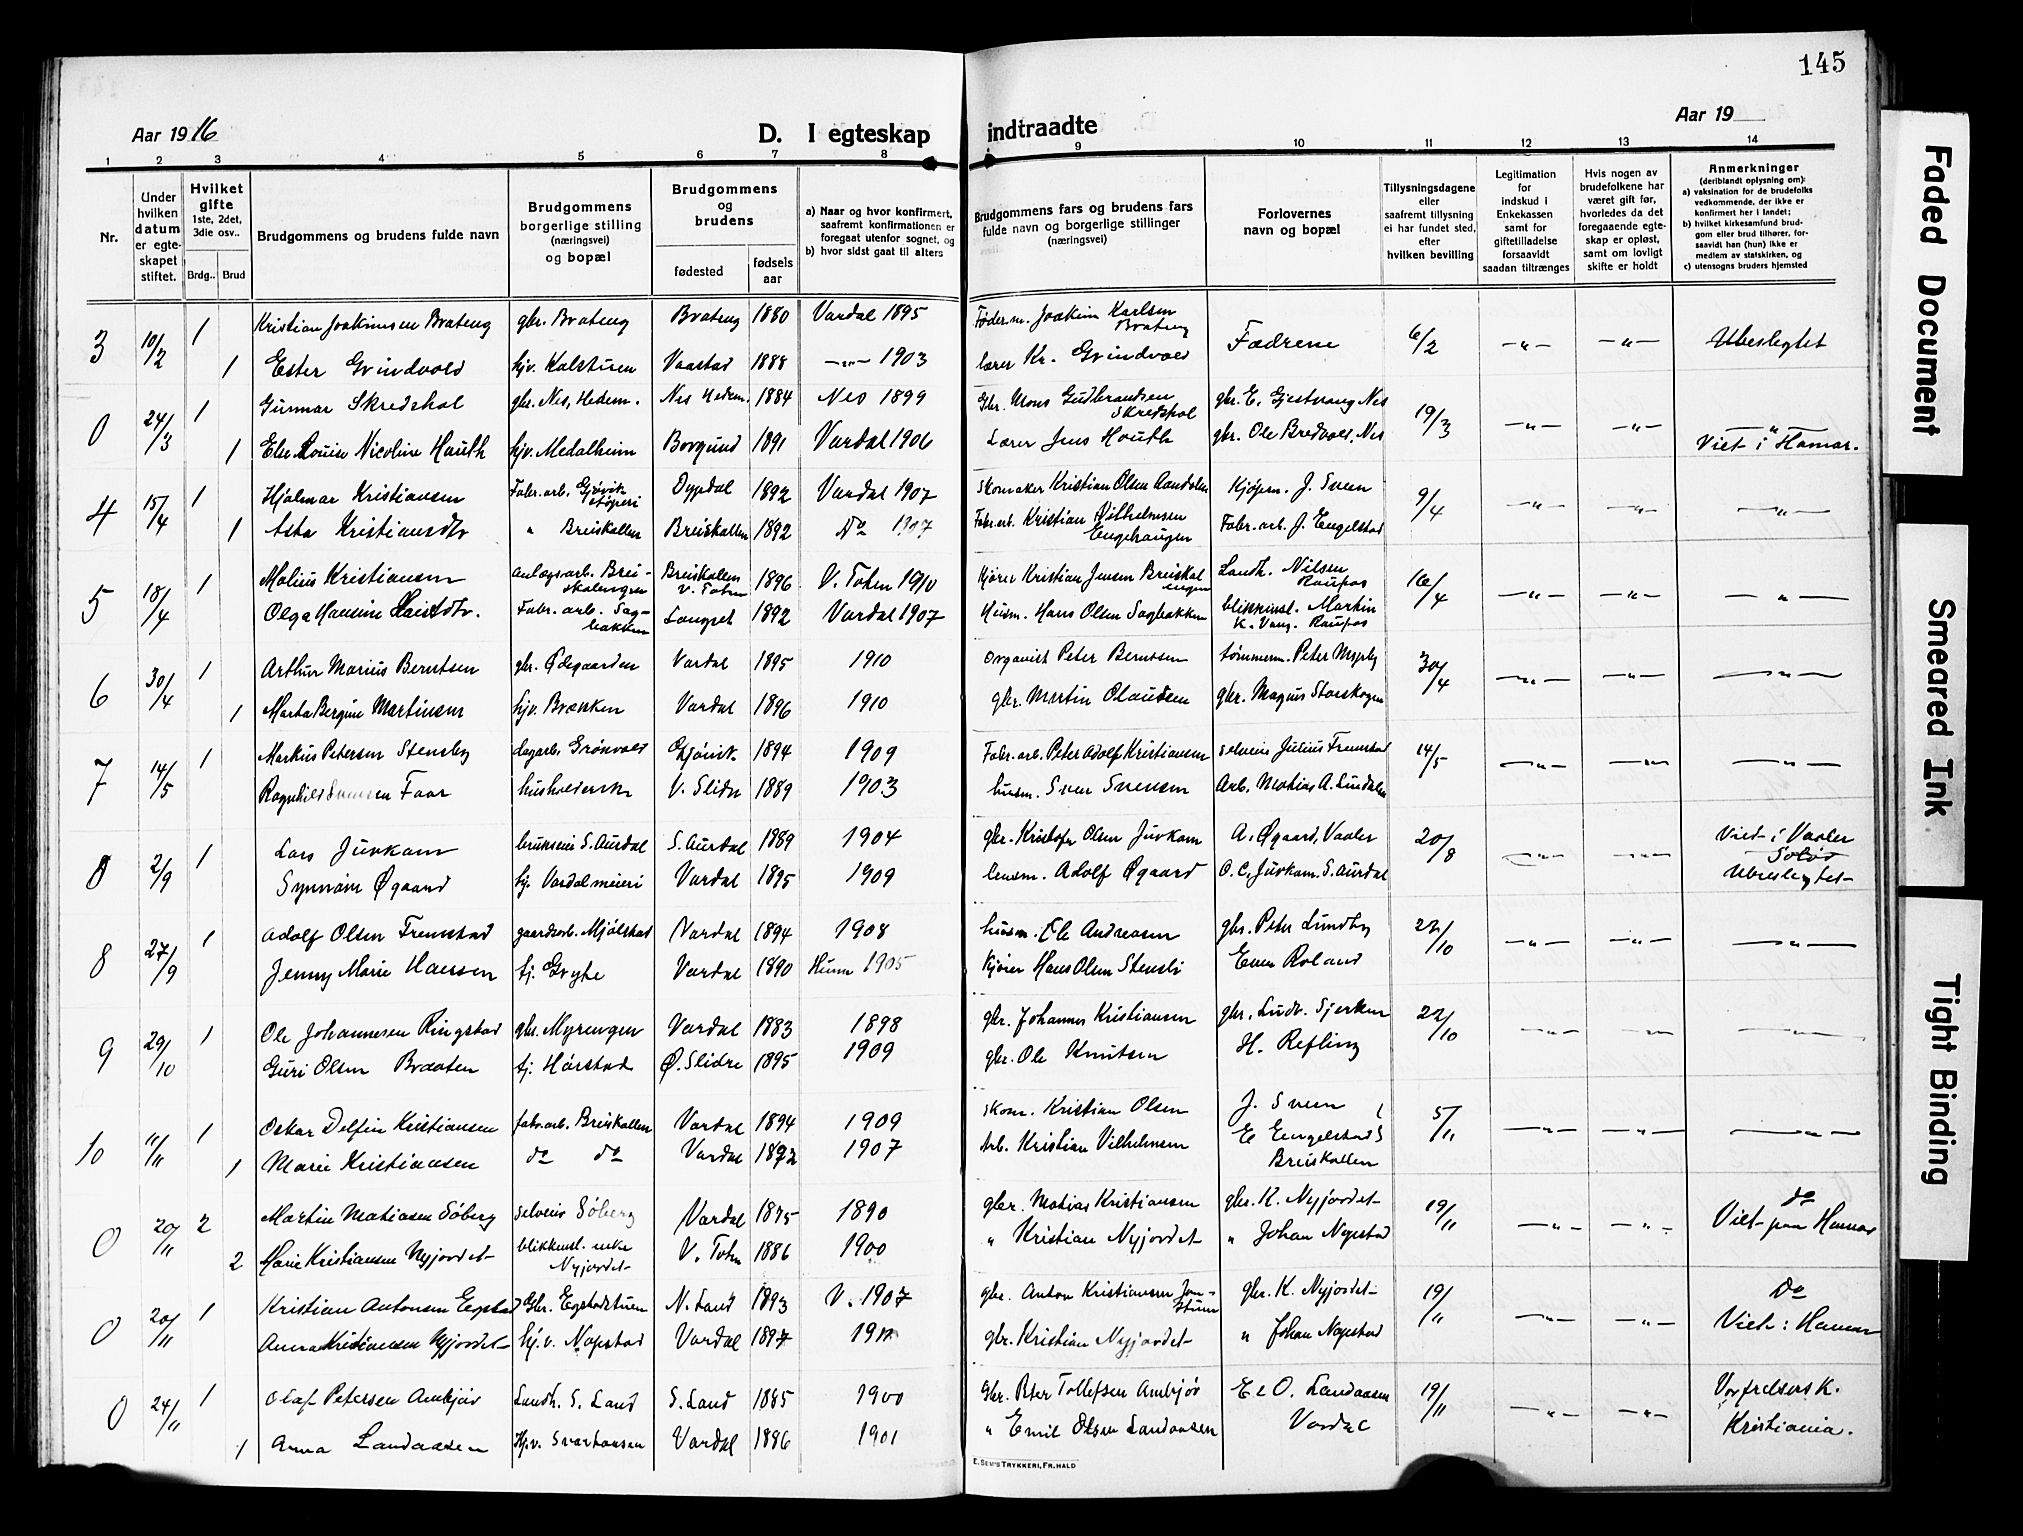 145
Aar 1916
D. I egteskap
indtraadte
Aar 19
1 2 3 4 5 6 7 8 9 10 11 12 13 14
Nr.
Under hvilken datum er egteskapet stiftet.
Hvilket gifte 1ste, 2det, 3die osv..
Brdg.. Brud
Brudgommens og brudens fulde navn
Brudgommens borgerlige stilling (næringsvei) og bopæl
Brudgommens og brudens
fødested
fødsels aar
a) Naar og hvor konfirmert, saafremt konfirmationen er foregaat utenfor sognet, og
b) hvor sidst gaat til alters
Brudgommens fars og brudens fars fulde navn og borgerlige stillinger (næringsvei)
Forlovernes navn og bopæl
Tillysningsdagene eller saafremt tillysning ei har fundet sted, efter hvilken bevilling
Legitimation for indskud i Enkekassen samt for giftetilladelse forsaavidt saadan tiltrænges
Hvis nogen av brudefolkene har været gift før, hvorledes da det foregaaende egteskap er opløst, samt om lovligt skifte er holdt
Anmerkninger (deriblandt oplysning om):
a) vaksination for de brudefolks vedkommende, der ikke er konfirmert her i landet;
b) hvilket kirkesamfund brudgom eller brud tilhører, forsaavidt han (hun) ikke er medlem av statskirken, og
c) utensogns bruders hjemsted
3 10/2 1 Kristian Joakimsen Brateng gbr. Brateng Brateng 1880 Vardal 1895 Joakim Karlsen Brateng Fædrene 6/2 —"— —"— Ubeslegtet
1 Ester Grindvold hjv. Kalstuen Vaastad 1888 —"— 1903 Lærer Kr. Grindvold
0 24/3 1 Gunnar Skredshol gbr. Nes, Hedem. Nes Hedem. 1884 Nes 1899 Gbr. Mons Gudbrandsen Skredshol gbr. E. Gjestvang Nes 19/3 —"— —"— —"—
1 Else Louise Nicoline Hauth hjv. Medalheim Borgund 1891 Vardal 1906 Lærer Jens Houth gbr. Ole Bredvold, Nes Viet i Hamar.
4 15/4 1 Hjalmar Kristiansen Fabr. arb. Gjøvik støperi Dypdal 1892 Vardal 1907 Skomaker Kristian Olsen Kjøpm. J. Sveen 9/4 —"— —"— —"—
1 Asta Kristiansdtr " Breiskallen Breiskallen 1892 Do 1907 Fabr. arb. Kristian Vilhelmsen Engehaugen Fabr. arb. J. Engelstad
5 18/4 1 Malius Kristiansen anlægsarb. Breiskalengen Breiskallen V. Toten 1896 V. Toten 1910 Kjører Kristian Jensen Breiskalengen Landh. Nilsen Raufos 16/4 —"— —"— —"—
Olga Hansine Fabr. arb. Sagbakken 1892 Vardal 1907 Husm. Hans Olsen Sagbakken blikkensl. Martin K. Vang. Raufos
6 30/4 1 Arthur Marius Berntsen gbr. Ødegaarden Vardal 1895 1910 Organist Peter Berntsen tømmerm. Peter Myrby 30/4 —"— —"— —"—
1 Marta Bergine Martinsen hjv. Brækken Vardal 1896 1910 gbr. Martin Olausen gbr. Magnus Storskogen
7 14/5 1 Markus Petersen Stensby dagarb. Grønvold Gjøvik. 1894 1909 Fabr. arb. Peter Adolf Kristiansen selveier Julius Fremstad 14/5 —"— —"— —"—
Ragnhild Svensen Faar husholderske V. Slidre 1889 1903 husm. Sven Svensen Arb. Matias A. Lundalen
0 2/9 1 Lars Juvkam brukseier S. Aurdal S. Aurdal 1889 1904 gbr. Kristofer Olsen Juvkam A. Øgaard, Vaaler 20/8 —"— —"— Viet i Vaaler Solør
Synnøve Øgaard tj. Vardal meieri Vardal 1895 1909 Adolf Øgaard O. C. Juvkam. S. Aurdal Ubeslegtet
8 27/9 1 Adolf Olsen Fremstad gaardsarb. Mjølstad Vardal 1894 1908 husm. Ole Andreasen gbr. Peter Lundby 22/10 —"— —"— —"—
Jenny Marie Hansen tj. Grythe Vardal 1890 Hunn 1905 Kjører Hans Olsen Stensli Even Roland
9 29/10 1 Ole Johannesen Ringstad gbr. Myrengen Vardal 1883 1898 gbr. Johannes Kristiansen gbr. Ludv. Sjerken 22/10 —"— —"— —"—
Guri Olsen Braaten tj. Hørstad Ø. Slidre 1895 1909 gbr. Ole Knutsen H. Refling
10 11/11 1 Oskar Delfin Kristiansen fabr. arb. Breiskallen Vardal 1894 1909 skom. Kristian Olsen J. Sveen 5/11 —"— —"— —"—
1 Marie Kristiansen do do Vardal 1892 1907 Arb. Kristian Vilhelmsen E Engelstad Breiskallen
0 20/11 2 Martin Matiasen Søberg selveier Søberg Vardal 1875 1890 gbr. Matias Kristiansen gbr. K. Nyjordet 19/11 —"— —"— do
2 Marie Kristiansen Nyjordet blikkensl. enke Nyjordet V. Toten 1886 1900 " Kristian Nyjordet " Johan Nøpstad Viet paa Hamar
0 20/11 1 Kristian Antonsen Egstad Gbr. Egstadstuen N. Land 1893 V. 1907 gbr. Anton Kristiansen gbr. K. Nyjordet 19/11 —"— —"— Do
Anna Kristiansen Nyjordet hj. v. Nøpstad Vardal 1897 gbr. Kristian Nyjordet " Johan Nøpstad Viet i Hamar
0 24/11 1 Olaf Petersen Ambjør Landh. S. Land S. Land 1885 1900 Gbr. Peter Tollefsen Ambjør E. O. Landaasen 19/11 —"— —"— Vorfrelsers K.
1 Anna Landaasen Hjv. Svartaasen Vardal 1886 1901 " Emil Olsen Landaasen Vardal Kristiania.
E. SEM'S TRYKKERI, FR.HALD
Faded Document
Smeared Ink
Tight Binding